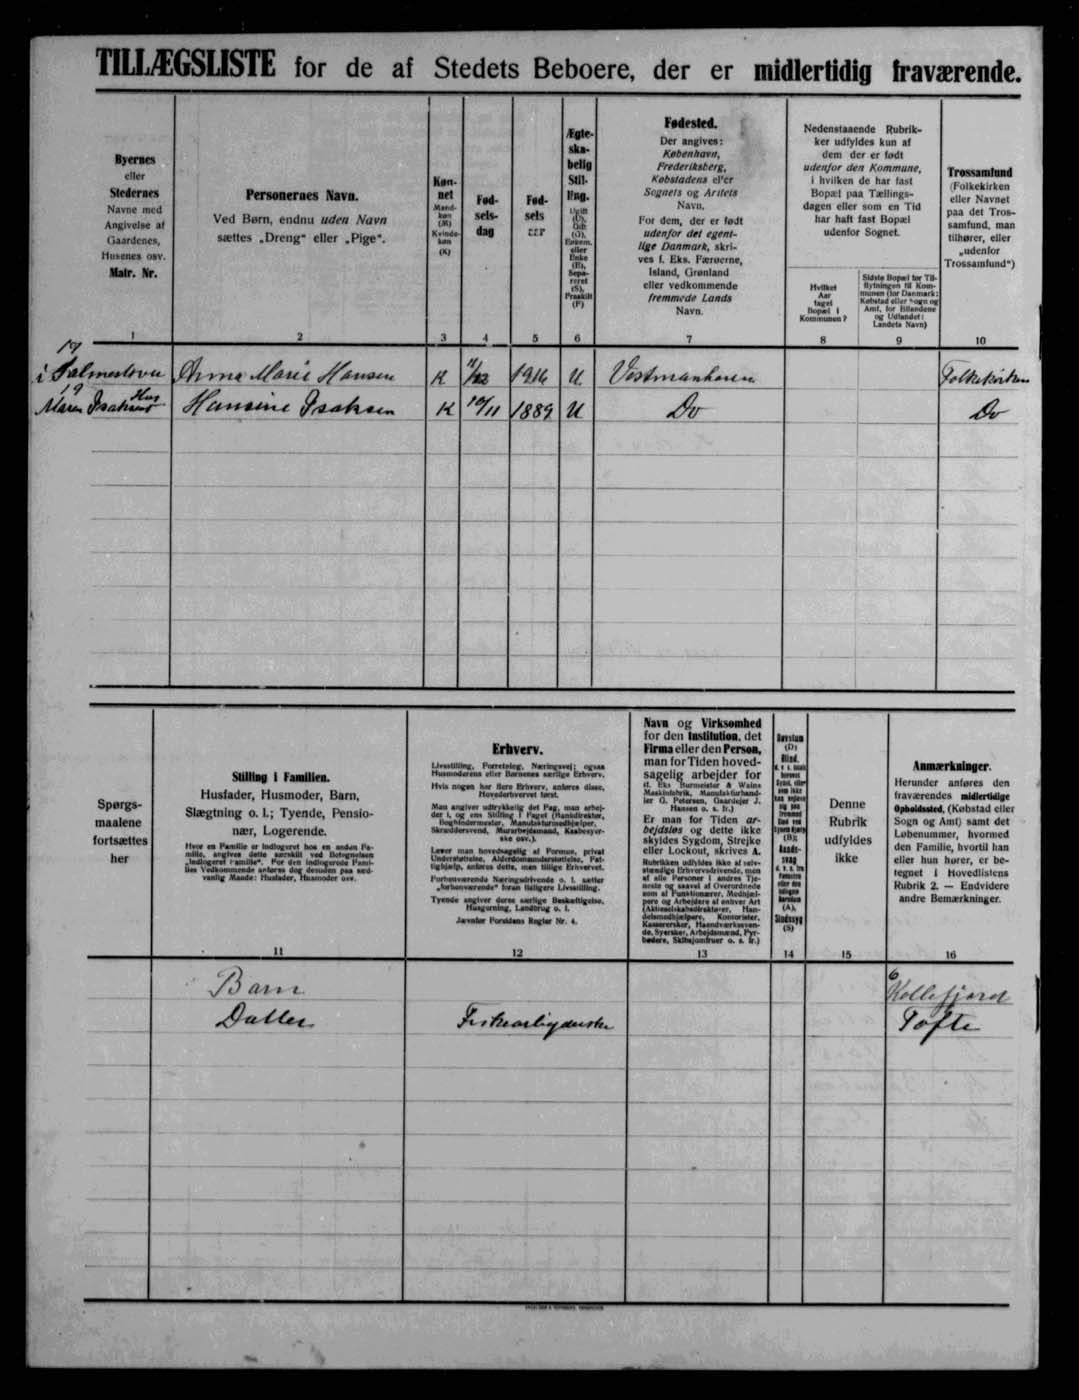 TILLÆGSLISTE for de af Stedets Beboere, der er midlertidig fraværende.
Byernes
eller
Stedernes
Navne med
Angivelse af
Gaardenes,
Husenes osv.
Matr. Nr.
1
Personernes Navn.
Ved Børn, endnu uden Navn
sættes „Dreng“ eller „Pige“.
2
Køn-
net
Mand-
køn
(M)
Kvinde-
køn
(K)
3
Fød-
sels-
dag
4
Fød-
sels
5
Ægte-
ska-
belig
Stil-
ling.
Ugift
(U),
Gift
(G),
Enkem.
eller
Enke
(E),
Sepa-
reret
(S),
Fraskilt
(F)
6
Fødested.
Der angives:
København,
Frederiksberg,
Købstadens eller
Sognets og Amtets
Navn.
For dem, der er født
udenfor det egent-
lige Danmark, skri-
ves f. Eks. Færøerne,
Island, Grønland
eller vedkommende
fremmede Lands
Navn.
7
Nedenstaaende Rubrik-
ker udfyldes kun af
dem der er født
udenfor den Kommune,
i hvilken de har fast
Bopæl paa Tællings-
dagen eller som en Tid
har haft fast Bopæl
udenfor Sognet.
Hvilket
Aar
taget
Bopæl i
Kommunen?
8
Sidste Bopæl før Til-
flytningen til Kom-
munen (for Danmark:
Købstad eller Sogn og
Amt, for Bilandene
og Udlandet:
Landets Navn)
9
Trossamfund
(Folkekirken
eller Navnet
paa det Tros-
samfund, man
tilhører, eller
„udenfor
Trossamfund“)
10
17
Anna Marie Hansen K 11/12 1916 U Vestmanhavn Folkekirken
19
Maren Isaksens Hus Hansine Isaksen K 10/11 1889 U Do Do
Spørgs-
maalene
fortsættes
her
Stilling i Familien.
Husfader, Husmoder, Barn,
Slægtning o. l.; Tyende, Pensio-
nær, Logerende.
Hvor en Familie er indlogeret hos en anden Fa-
milie, angives dette særskilt ved Betegnelsen
„indlogeret Familie“. For den indlogerede Fami-
lies Vedkommende anføres dog desuden paa sæd-
vanlig Maade: Husfader, Husmoder osv.
11
Erhverv.
Livsstilling, Forretning, Næringsvej; ogsaa
Husmoderens eller Børnenes særlige Erhverv.
Hvis nogen har flere Erhverv, anføres disse,
Hovederhvervet først.
Man angiver udtrykkelig det Fag, man arbej-
der i, og ens Stilling i Faget (Bankdirektør,
Bogbindermester, Manufakturmedhjælper,
Skræddersvend, Murarbejdsmand, Kaabesyer-
ske osv.).
Lever man hovedsagelig af Formue, privat
Understøttelse, Alderdomsunderstøttelse, Fat-
tighjælp, anføres dette, men tillige Erhvervet.
Forhenværende Næringsdrivende o. l. sætter
„forhenværende“ foran tidligere Livsstilling.
Tyende angiver deres særlige Beskæftigelse,
Husgerning, Landbrug o. l.
Jævnfør Forsidens Regler Nr. 4.
12
Navn og Virksomhed
for den Institution, det
Firma eller den Person,
man for Tiden hoved-
sagelig arbejder for
(f. Eks Burmeister & Wains
Maskinfabrik, Manufakturhand-
ler G. Petersen, Gaardejer J.
Hansen o. s. fr.)
Er man for Tiden ar-
bejdsløs og dette ikke
skyldes Sygdom, Strejke
eller Lockout, skrives A.
Rubrikken udfyldes ikke af selv-
stændige Erhvervsdrivende, men
af alle Personer i andres Tje-
neste og saavel af Overordnede
som af Funktionærer, Medhjæl-
pere og Arbejdere af enhver Art
(Aktieselskabsdirektører, Han-
delsmedhjælpere, Kontorister,
Kassererske, Haandværkssven-
de, Syersker, Arbejdsmænd, Fyr-
bødere, Skibsjomfruer o. s. fr.)
13
Døvstum
(D)
Blind,
(B);
Aands-
svag
(A),
Sindssyg
(S)
14
Denne
Rubrik
udfyldes
ikke
15
Anmærkninger.
Herunder anføres den
fraværendes midlertidige
Opholdssted, (Købstad eller
Sogn og Amt) samt det
Løbenummer, hvormed
den Familie, hvortil han
eller hun hører, er be-
tegnet i Hovedlistens
Rubrik 2. — Endvidere
andre Bemærkninger.
16
Barn Kollefjord
Datter Fiskearbejderske Tofte